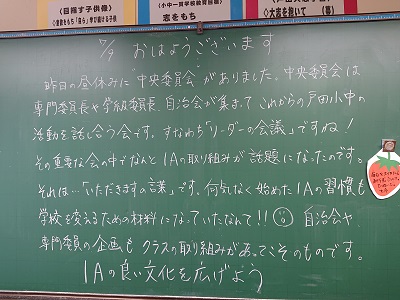 (目指す子供像)
(小中一貫学校教育目標)
志をもち
大志を抱いて
7/9 おはようございます
昨日の昼休みに中央委員会がありました。中央委員会は
専門委員長や学級委員長、自治会が集まってこれからの戸田小中の
活動を話し合う会です。すなわち「リーダーの会議」ですね!
その重要な会の中でなんと1Aの取り組みが話題になったのです。
それは…「いただきますの言葉」です。何気なく始めた1Aの習慣も
学校を変えるための材料になっていたなんて!! 自治会や
専門委員の企画もクラスの取り組みがあってこそのものです。
1Aの良い文化を広げよう